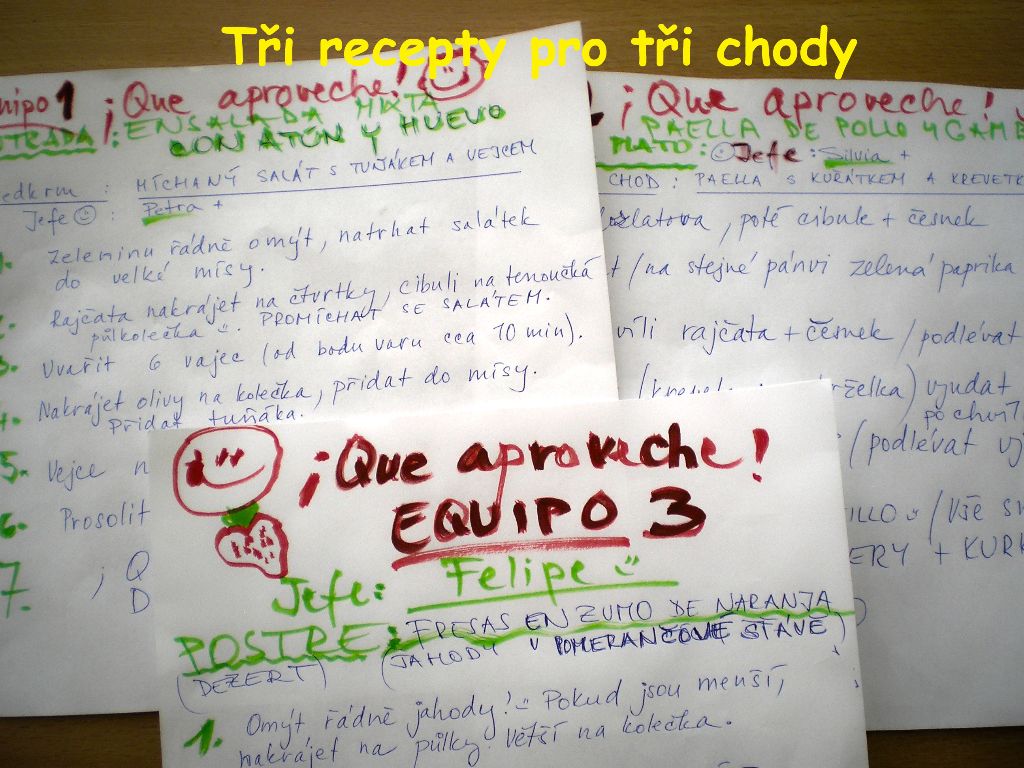 Tři recepty pro tři chody
uipo 1 ¡Que aproveche!
TRADA: ENSALADA MIXTA
CON ATÚN Y HUEVO
edkrm : MÍCHANÝ SALÁT S TUŇÁKEM A VEJCEM
Jefe : Petra +
Zeleninu řádně omýt, natrhat salátek
do velké mísy.
2. Rajčata nakrájet na čtvrtky, cibuli na tenoučká
půlkolečka. PROMÍCHAT SE SALÁTEM.
3. Uvařit 6 vajec (od bodu varu cca 10 min).
4. Nakrájet olivy na kolečka, přidat do mísy.
Přidat tuňáka.
5. Vejce n
6. Prosolit
7. ¡Q
D
¡Que aproveche!
PAELLA DE POLLO Y GAMB
PLATO: Jefe: Silvia +
CHOD: PAELLA S KUŘÁTKEM A KREVETK
zlatova, poté cibule + česnek
/na stejné pánvi zelená paprika
víli rajčata + česnek /podlévat
vyndat
po chvíli
/podlévat vý
ILLO /Vše sm
ERY + KURK
¡Que aproveche!
EQUIPO 3
Jefe: Felipe
POSTRE: FRESAS EN ZUMO DE NARANJA
(DEZERT) (JAHODY V POMERANČOVÉ ŠŤÁVĚ)
1. Omýt řádně jahody! Pokud jsou menší,
nakrájet na půlky. Větší na kolečka.